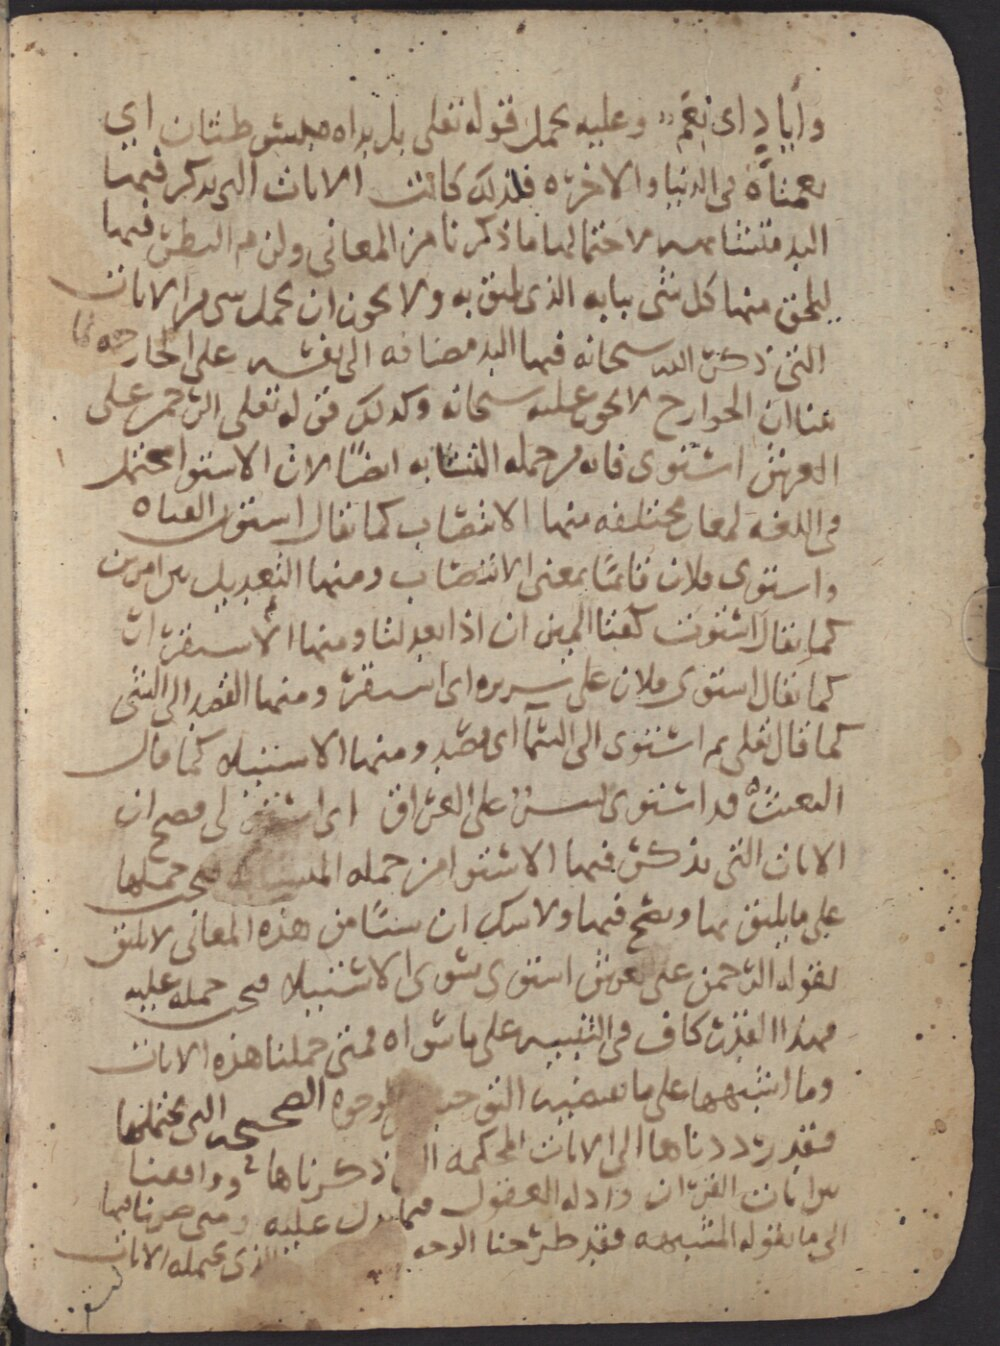 وأيادٍ اى نعم وعليه يحمل قوله تعلى بل يداه مبسوطتان اي
نعمتاه فى الدنيا والاخره فلذلك كانت الايات التى يذكر فيها
اليد متشابهه لاحتمالها ما ذكرنا من المعانى ولزم النظر فيها
ليلحق منها كل شى ببابه الذى يليق به ولا يجوز ان يحمل شى من الايات
التى ذكر الله سبحانه فيها اليد مضافه الى نفسه على الجارحه لما
بينا ان الجوارح لا تجوز عليه سبحانه وكذلك قوله تعلى الرحمن على
العرش استوى فانه من جمله المتشابه ايضًا لان الاستوا محتمل
فى اللغه لمعان مختلفه منها الانتصاب كما يقال استوت القناه
واستوى فلان قائمًا بمعنى الانتصاب ومنها التعديل بين امرين
كما يقال استوت كفتا الميزان اذا تعدلتا ومنها الاستقرار
كما يقال استوى فلان على سريره اى استقر ومنها القصد الى الشى
كما قال تعلى ثم استوى الى السمآ اى قصد ومنها الاستيلا كما قال
البعيث قد استوى بشر على العراق اى استولى فصح ان
الايات التى يذكر فيها الاستوا من جمله المتشابه فيجب حملها
على ما يليق بها ويصح فيها ولا شك ان شيئًا من هذه المعانى لا يليق
بقوله الرحمن على العرش استوى سوى الاستيلا فيجب حمله عليه
فهذا القدر كاف فى التنبيه على ما سواه فمتى حملنا هذه الايات
وما اشبهها على ما يقتضيه التوحيد الوجوه الصحيحه التى يحتملها
فقد رددناها الى الايات المحكمه ذكرناها ووافقنا
بين ايات القرآن وادله العقول فيما يدل عليه ومتى صرنا فيها
الى ما يقوله المشبهه فقد طرحنا الوجه الذى يحتمله الايات